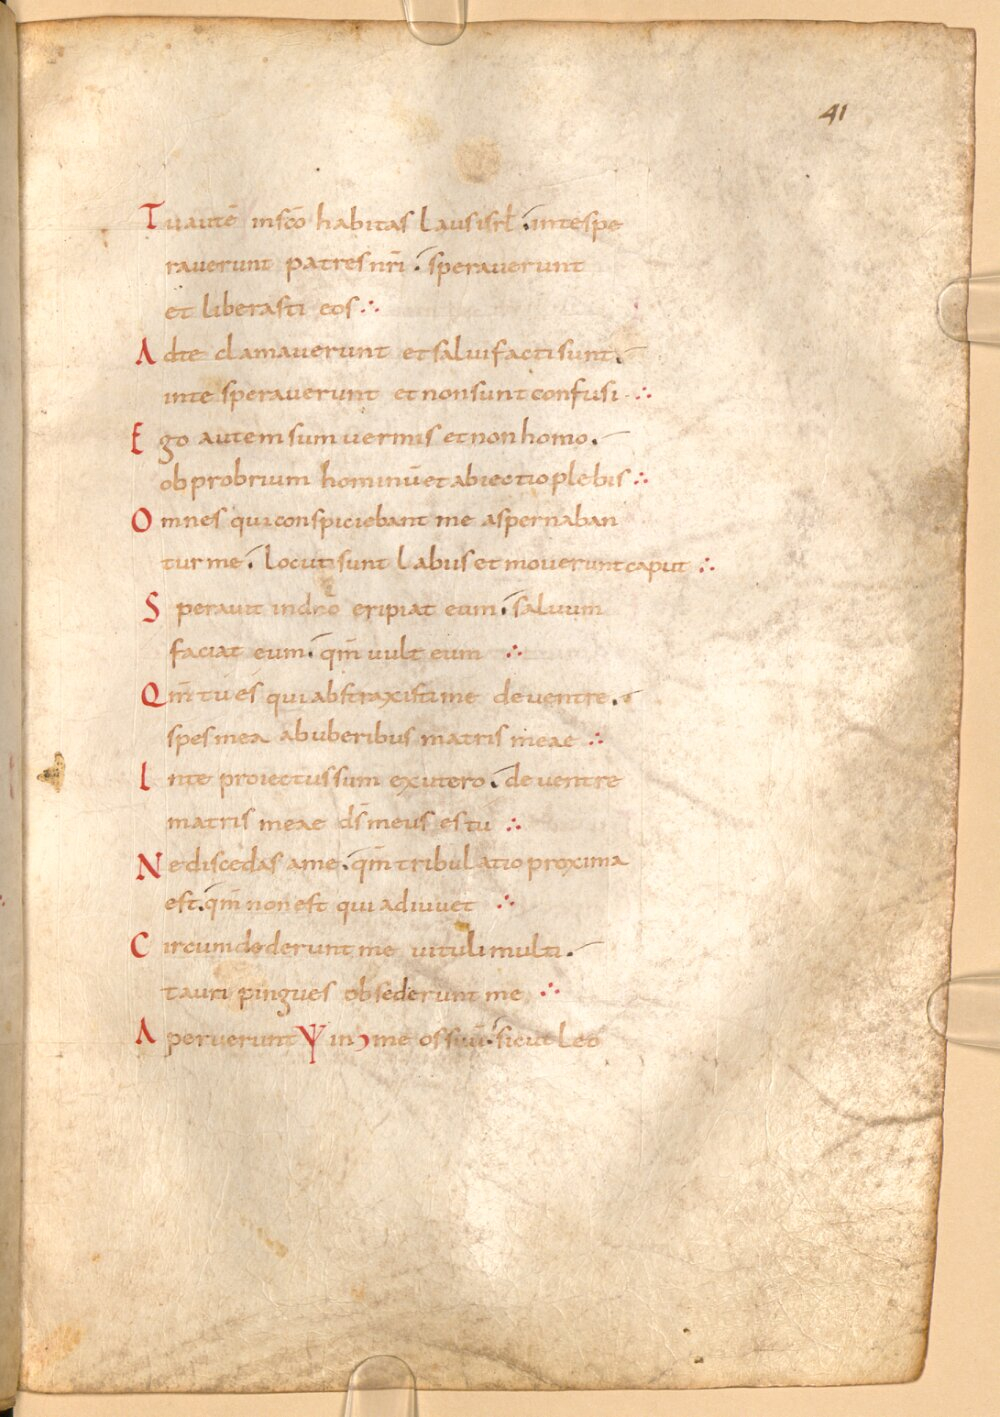 41
Tu autē in sc̄o habitas laus isrl̄. in te spe
raverunt patres nr̄i. speraverunt
et liberasti eos ∴
Ad te clamaverunt et salvi facti sunt.
in te speraverunt et non sunt confusi ∴
Ego autem sum vermis et non homo.
obprobrium hominū et abiectio plebis ∴
Omnes qui conspiciebant me aspernaban
tur me. locuti sunt labiis et moverunt caput ∴
Speravit in dn̄o eripiat eum. salvum
faciat eum. qm̄ vult eum ∴
Qm̄ tu es qui abstraxisti me de ventre.
spes mea ab uberibus matris meae ∴
In te proiectus sum ex utero. de ventre
matris meae ds̄ meus es tu ∴
Ne discedas a me. qm̄ tribulatio proxima
est. qm̄ non est qui adiuvet ∴
Circumdederunt me vituli multi.
tauri pingues obsederunt me ∴
Aperuerunt in me os suū. sicut leo